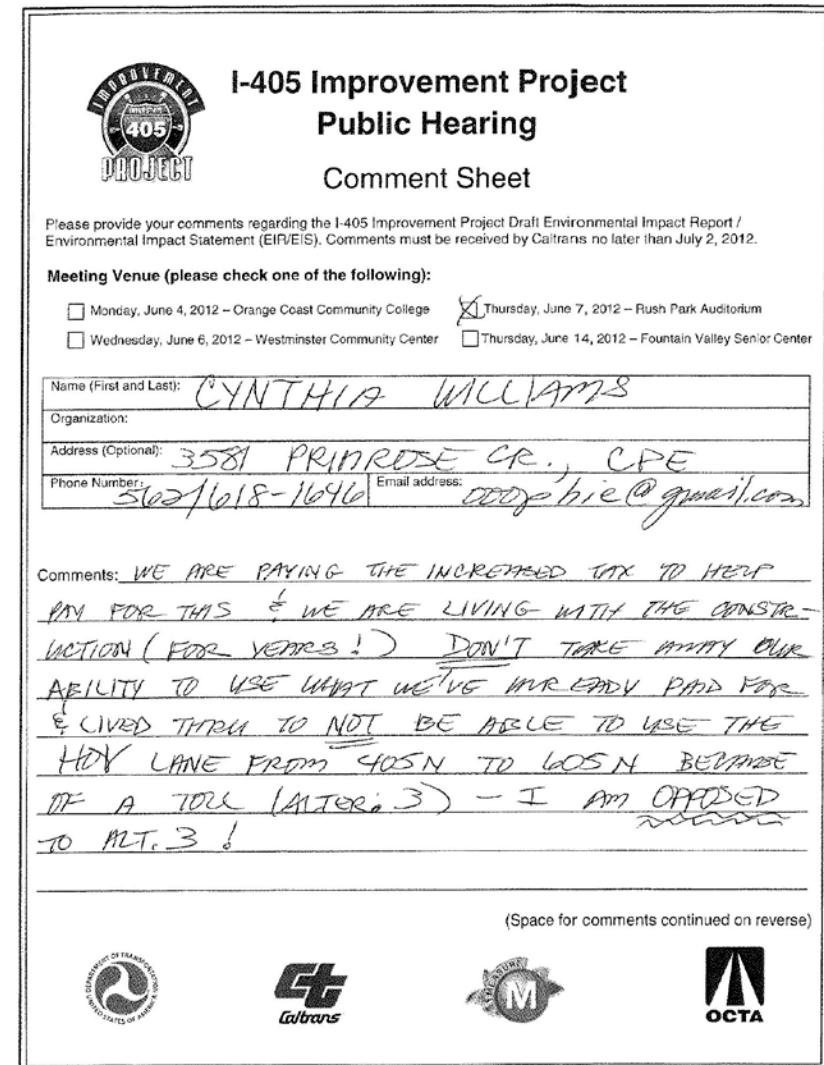 IMPROVEMENT
INTERSTATE
405
PROJECT
I-405 Improvement Project
Public Hearing
Comment Sheet
Please provide your comments regarding the I-405 Improvement Project Draft Environmental Impact Report /
Environmental Impact Statement (EIR/EIS). Comments must be received by Caltrans no later than July 2, 2012.
Meeting Venue (please check one of the following):
Monday, June 4, 2012 – Orange Coast Community College
Thursday, June 7, 2012 – Rush Park Auditorium
Wednesday, June 6, 2012 – Westminster Community Center
Thursday, June 14, 2012 – Fountain Valley Senior Center
Name (First and Last): CYNTHIA WILLIAMS
Organization:
Address (Optional): 3581 PRIMROSE CR., CPE
Phone Number: 562/618-1646 Email address: @gmail.com
Comments: WE ARE PAYING THE INCREASED TAX TO HELP
PAY FOR THIS & WE ARE LIVING WITH THE CONSTR-
UCTION (FOR YEARS!) DON'T TAKE AWAY OUR
ABILITY TO USE WHAT WE'VE ALREADY PAID FOR
& LIVED THRU TO NOT BE ABLE TO USE THE
HOV LANE FROM 405N TO 605N BECAUSE
OF A TOLL (ALTER. 3) – I AM OPPOSED
TO ALT. 3!
(Space for comments continued on reverse)
DEPARTMENT OF TRANSPORTATION
UNITED STATES OF AMERICA
Caltrans
MEASURE
M
OCTA